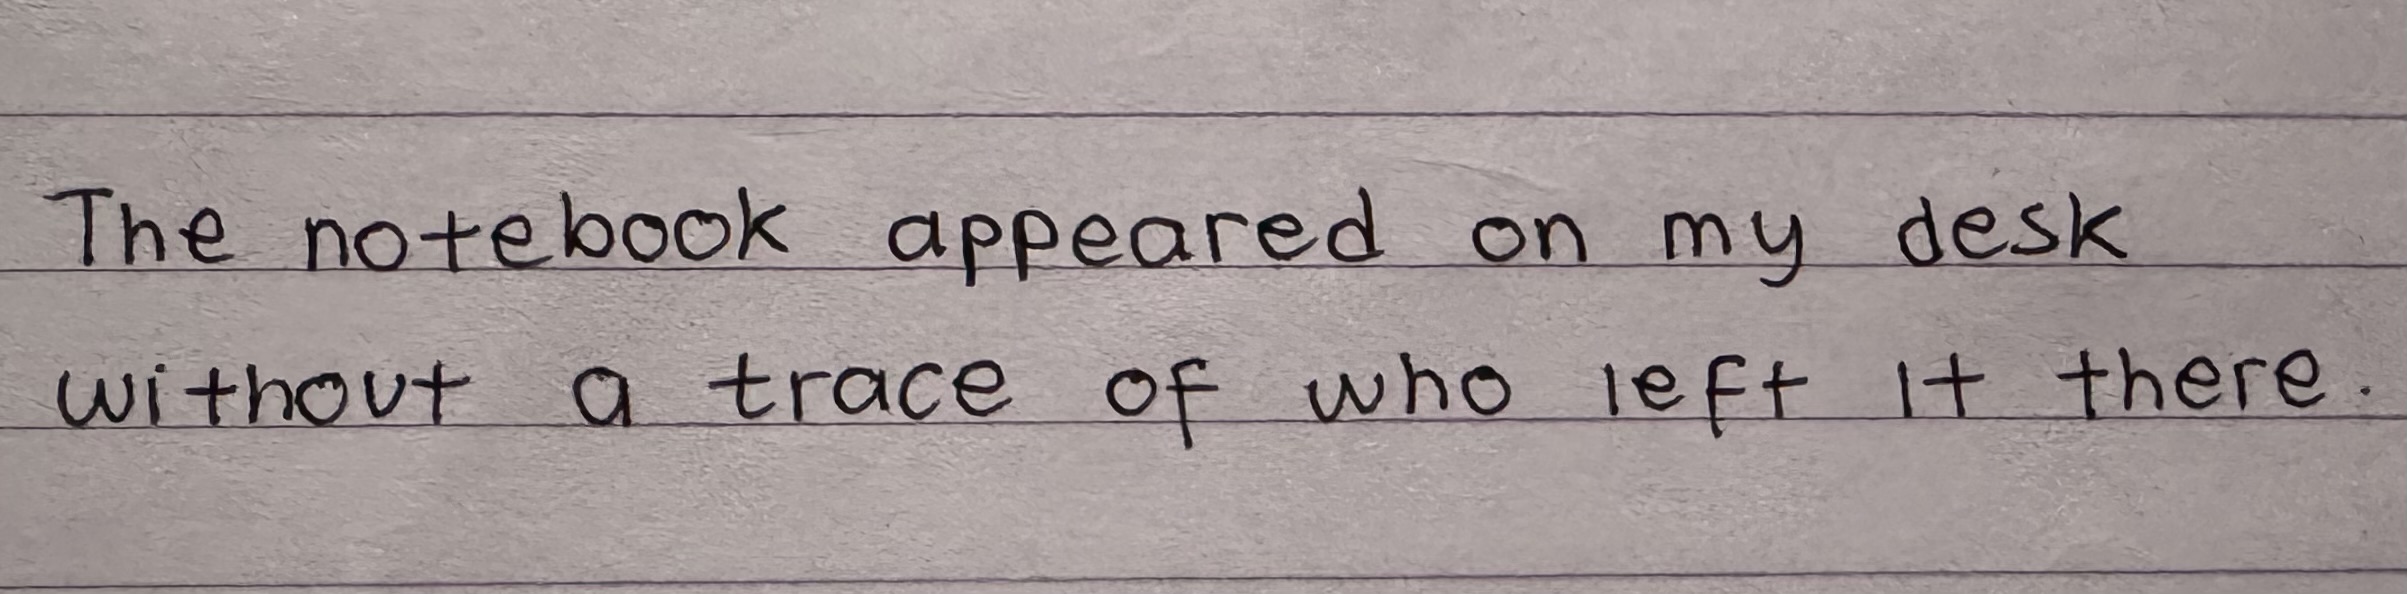 The notebook appeared on my desk
without a trace of who left it there.